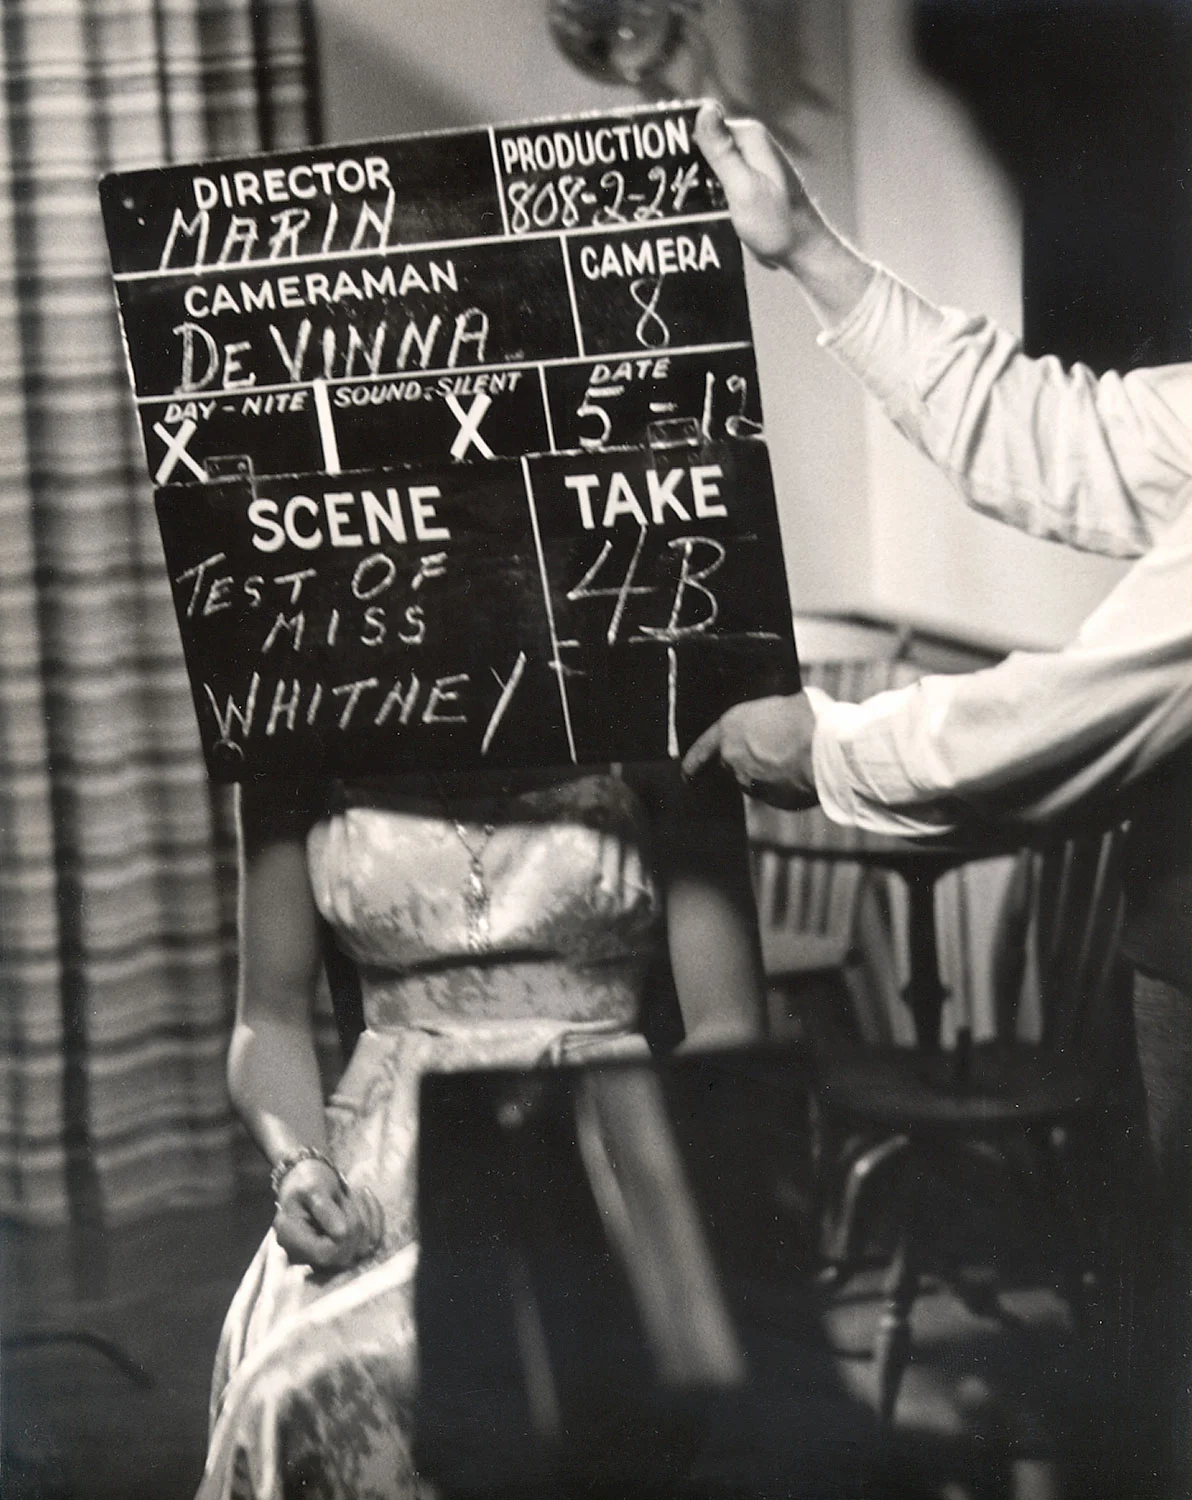 DIRECTOR
MARIN
PRODUCTION
808-2-24
CAMERAMAN
DE VINNA
CAMERA
8
DAY-NITE
X
SOUND-SILENT
X
DATE
5-12
SCENE
TEST OF
MISS
WHITNEY
TAKE
4B
1